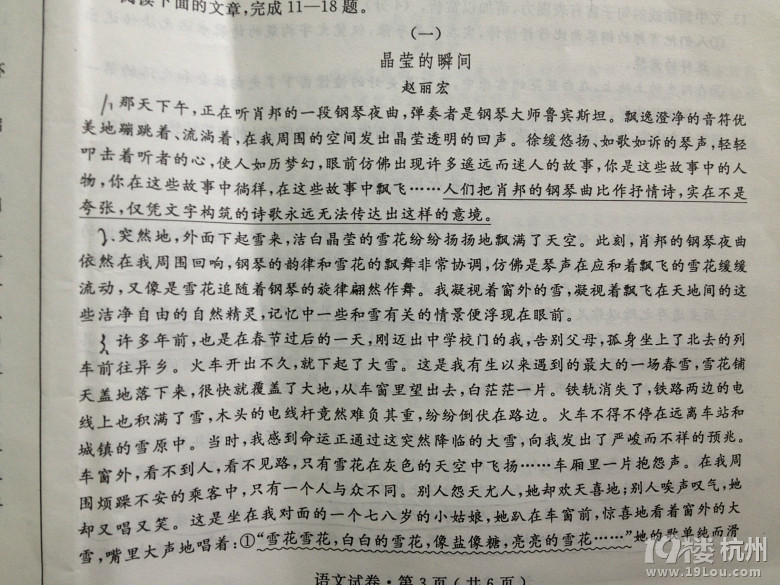 阅读下面的文章,完成11—18题。
(一)
晶莹的瞬间
赵丽宏
1 那天下午,正在听肖邦的一段钢琴夜曲,弹奏者是钢琴大师鲁宾斯坦。飘逸澄净的音符优
美地蹦跳着、流淌着,在我周围的空间发出晶莹透明的回声。徐缓悠扬、如歌如诉的琴声,轻轻
叩击着听者的心,使人如历梦幻,眼前仿佛出现许多遥远而迷人的故事,你是这些故事中的人
物,你在这些故事中徜徉,在这些故事中飘飞……人们把肖邦的钢琴曲比作抒情诗,实在不是
夸张,仅凭文字构筑的诗歌永远无法传达出这样的意境。
2.突然地,外面下起雪来,洁白晶莹的雪花纷纷扬扬地飘满了天空。此刻,肖邦的钢琴夜曲
依然在我周围回响,钢琴的韵律和雪花的飘舞非常协调,仿佛是琴声在应和着飘飞的雪花缓缓
流动,又像是雪花追随着钢琴的旋律翩然作舞。我凝视着窗外的雪,凝视着飘飞在天地间的这
些洁净自由的自然精灵,记忆中一些和雪有关的情景便浮现在眼前。
3 许多年前,也是在春节过后的一天,刚迈出中学校门的我,告别父母,孤身坐上了北去的列
车前往异乡。火车开出不久,就下起了大雪。这是我有生以来遇到的最大的一场春雪,雪花铺
天盖地落下来,很快就覆盖了大地,从车窗里望出去,白茫茫一片。铁轨消失了,铁路两边的电
线上也积满了雪,木头的电线杆竟然难负其重,纷纷倒伏在路边。火车不得不停在远离车站和
城镇的雪原中。当时,我感到命运正通过这突然降临的大雪,向我发出了严峻而不祥的预兆。
车窗外,看不到人,看不见路,只有雪花在灰色的天空中飞扬……车厢里一片抱怨声。在我周
围烦躁不安的乘客中,只有一个人与众不同。别人怨天尤人,她却欢天喜地;别人唉声叹气,她
却又唱又笑。这是坐在我对面的一个七八岁的小姑娘,她趴在车窗前,惊喜地看着窗外的大
雪,嘴里大声地唱着:①“雪花雪花,白白的雪花,像盐像糖,亮亮的雪花……”她的歌单纯而滑
语文试卷·第3页(共6页)
19楼 杭州
www.19lou.com